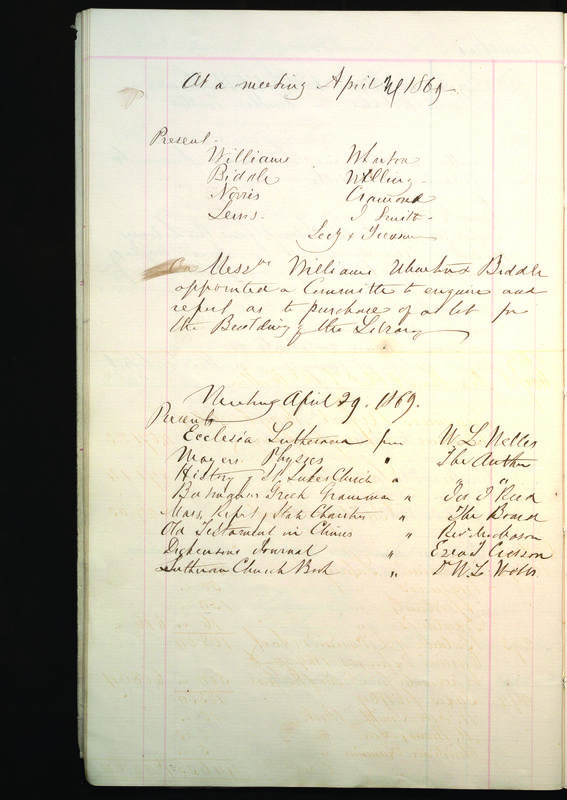 At a meeting April 1869.
Present.
Williams Wharton
Biddle Welling
Norris Cramond
Lewis. J Smith
Secy &
Messrs Williams Wharton & Biddle
appointed a Committee to enquire and
report as to purchase of a lot for
the Building of the Library
Meeting April 29. 1869.
Presents
Ecclesia Lutherana from W L
Mayers Physics " The Author
History St Lukes Church " "
Greek Grammar " J Reed
Mass. Rept of State Charities " The Board
Old Testament in Chinese " Revd
Dickensons Journal " Ezra T Cresson
Lutheran Church Book " D W L